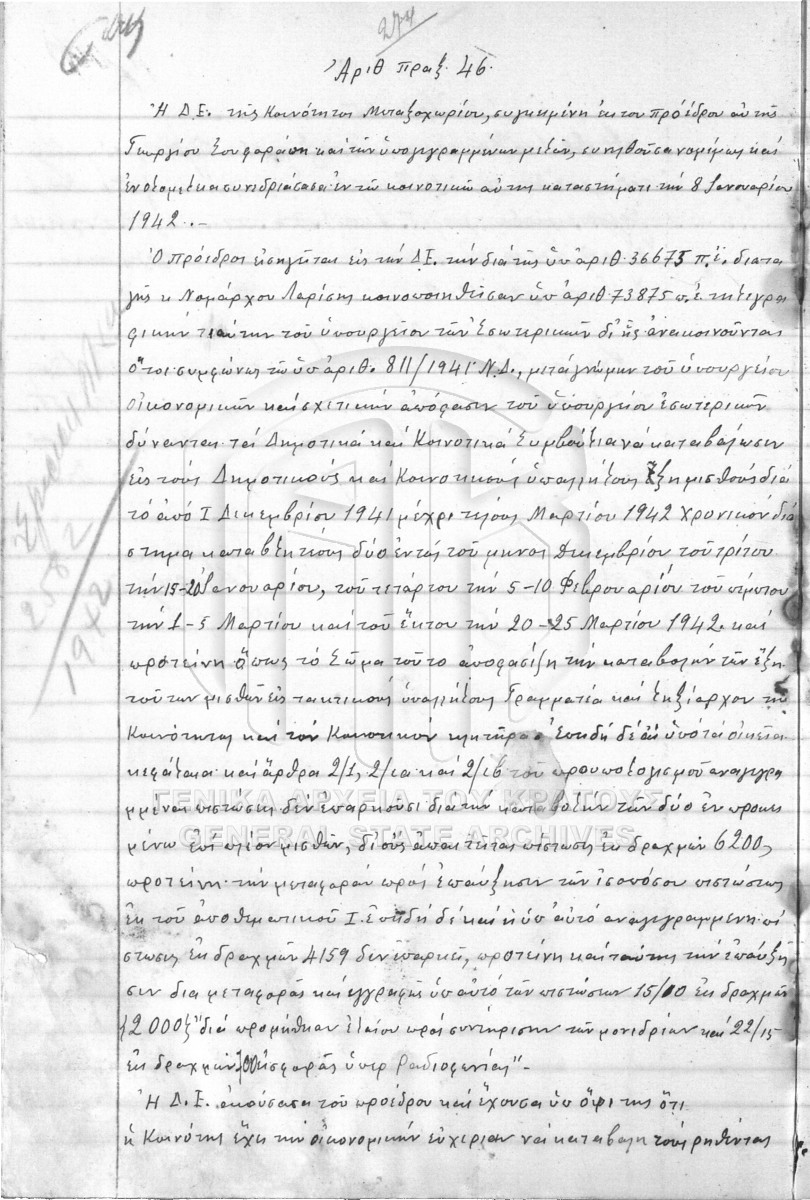 274
Ἀριθ πραξ. 46.
Ἡ Δ.Ε. τῆς Κοινότητος Μεταξοχωρίου, συγκειμένη ἐκ του προέδρου αὐτῆς
Γεωργίου καὶ τῶν ὑπογεγραμμένων μελῶν, συνελθοῦσα νομίμως καὶ
ἐν ὁλομελεία συνεδριάσασα ἐν τῶ κοινοτικῶ αὐτης καταστήματι τὴν 8 Ἰανουαρίου
1942.-
Ὁ πρόεδρος εἰσηγεῖται εἰς τὴν Δ.Ε. τὴν διὰ τῆς ὑπ' ἀριθ. 36675 π.ἔ. διατα
γῆς κ Νομάρχου Λαρίσης κοινοποιηθεῖσαν ὑπ' ἀριθ 73875 π.ἔ. τηλεγρα
φικὴν τοῦ ὑπουργείου τῶν Ἐσωτερικῶν δι' ἧς ἀνακοινοῦνται
ὅτι συμφώνως τῶ ὑπ' ἀριθ. 811/1941 Ν.Δ., μετὰ γνώμην τοῦ ὑπουργείου
οἰκονομικῶν καὶ σχετικὴν ἀπόφασιν τοῦ ὑπουργείου ἐσωτερικῶν
δύνανται τὰ Δημοτικὰ καὶ Κοινοτικὰ Συμβούλια νὰ καταβάλωσιν
εἰς τοὺς Δημοτικοὺς καὶ Κοινοτικοὺς ὑπαλλήλους ἕξη μισθοὺς διὰ
τὸ ἀπὸ 1 Δεκεμβρίου 1941 μέχρι τέλους Μαρτίου 1942 χρονικὸν διά
στημα καταβλητέους δύο ἐντὸς τοῦ μηνος Δεκεμβρίου τοῦ τρίτου
τὴν 15-20 Ἰανουαρίου, τοῦ τετάρτου τὴν 5-10 Φεβρουαρίου τοῦ πέμπτου
τὴν 1-5 Μαρτίου καὶ τοῦ ἕκτου τὴν 20-25 Μαρτίου 1942. καὶ
προτείνη ὅπως τὸ Σῶμα τοῦτο ἀποφασίζη τὴν καταβολὴν τῶν ἕξη
τούτων μισθῶν εἰς τακτικοὺς ὑπαλλήλους Γραμματέα καὶ ληξίαρχον τῆς
Κοινότητος καὶ τὸν Κοινοτικὸν κλητῆρα. Ἐπειδὴ δὲ αἱ ὑπὸ τὰ οἰκεῖα
κεφάλαια καὶ ἄρθρα 2/1, 2/1α καὶ 2/1β τοῦ προυπολογισμοῦ αναγεγρα
μμέναι πιστώσεις δὲν ἐπαρκοῦσι διὰ τὴν καταβολὴν τῶν δύο ἐν προκει
μένω ἐπὶ πλέον μισθῶν, δι' οὓς ἀπαιτεῖται πίστωσις ἐκ δραχμῶν 6200,
προτείνει τὴν μεταφορὰν πρὸς ἐπαύξησιν τῶν ἰσοπόσου πιστώσεως
ἐκ τοῦ ἀποθεματικοῦ Ι. Ἐπειδὴ δὲ καὶ ἡ ὑπ' αὐτὸ αναγεγραμμενη πί
στωσις ἐκ δραχμῶν 4159 δεν ἐπαρκεῖ, προτείνη καὶ ταύτης τὴν ἐπαύξη
σιν δια μεταφορᾶς καὶ ἐγγραφῆς ὑπ' αὐτὸ τῶν πιστώσεων 15/10 ἐκ δραχμῶν
{2000} "διὰ προμήθειαν ἐλαίου πρὸς συντήρισιν τῶν καὶ 22/15
ἐκ δραχμῶν εἰσφορᾶς ὑπὲρ ραδιοφωνίας".-
Ἡ Δ.Ε. ἀκούσασα τοῦ προέδρου καὶ ἔχουσα ὑπ' ὄψι της ὅτι
ἡ Κοινότης ἔχει τὴν οἰκονομικὴν εὐχέρειαν νὰ καταβάλη τοὺς ρηθέντας
258 2
1942
ΓΕΝΙΚΑ ΑΡΧΕΙΑ ΤΟΥ ΚΡΑΤΟΥΣ
GENERAL STATE ARCHIVES